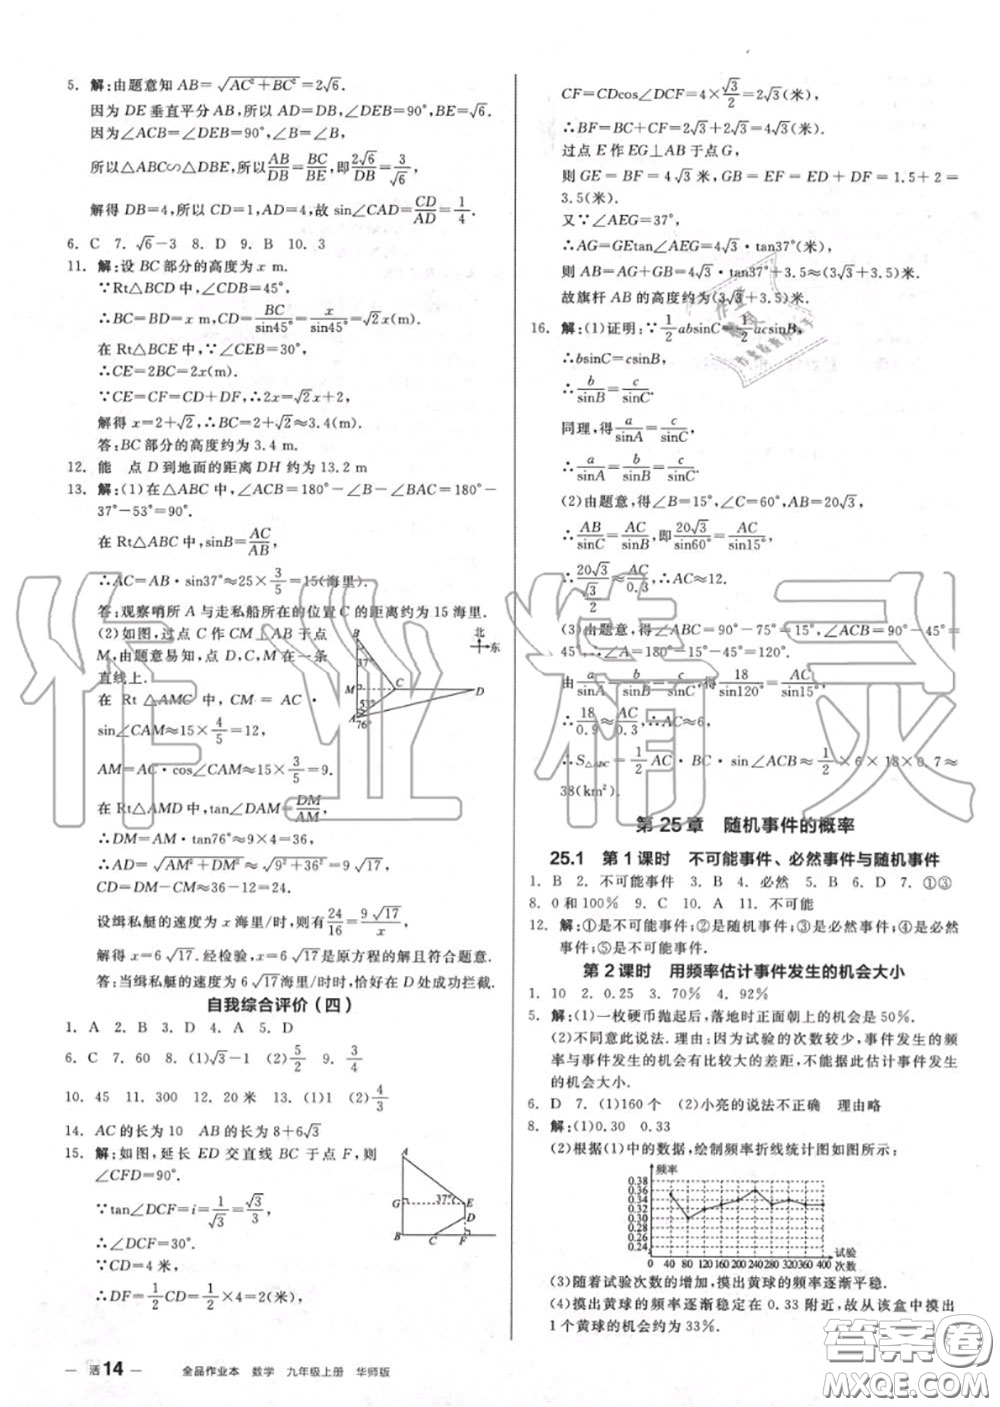 5. 解:由题意知 AB=√(AC²+BC²)=2√6.
因为 DE 垂直平分 AB,所以 AD=DB,∠DEB=90°,BE=√6.
因为∠ACB=∠DEB=90°,∠B=∠B,
所以△ABC∽△DBE,所以AB/DB=BC/BE,即2√6/DB=3/√6,
解得 DB=4,所以 CD=1,AD=4,故 sin∠CAD=CD/AD=1/4.
6. C 7. √6-3 8. D 9. B 10. 3
11. 解:设 BC 部分的高度为 x m.
∵Rt△BCD 中,∠CDB=45°,
∴BC=BD=x m,CD=BC/sin45°=x/sin45°=√2x(m).
在 Rt△BCE 中,∵∠BEC=30°,
∴CE=2BC=2x(m).
∵CE=CF+EF=CD+DF,∴2x=√2x+2,
解得 x=2+√2,∴BC=2+√2≈3.4(m).
答:BC 部分的高度约为 3.4 m.
12. 能 点 D 到地面的距离 DH 约为 13.2 m
13. 解:(1)在△ABC 中,∠ACB=180°-∠B-∠BAC=180°-
37°-53°=90°.
在 Rt△ABC 中,sinB=AC/AB,
∴AC=AB·sin37°≈25×3/5=15(海里).
答:观察哨所 A 与走私船所在的位置 C 的距离约为 15 海里.
(2)如图,过点 C 作 CM⊥AB 于点
M,由题意易知,点 D,C,M 在一条
直线上.
在 Rt △AMC 中, CM = AC ·
sin∠CAM≈15×4/5=12,
AM=AC·cos∠CAM≈15×3/5=9.
在 Rt△AMD 中,tan∠DAM=DM/AM,
∴DM=AM·tan76°≈9×4=36,
∴AD=√(AM²+DM²)≈√(9²+36²)=9√17,
CD=DM-CM≈36-12=24.
设缉私艇的速度为 x 海里/时,则有24/16=9√17/x,
解得 x=6√17.经检验,x=6√17是原方程的解且符合题意.
答:当缉私艇的速度为 6√17海里/时时,恰好在 D 处成功拦截.
B
37°
M
C
D
53°
A
76°
北
东
自我综合评价(四)
1. A 2. B 3. D 4. A 5. D
6. C 7. 60 8. (1)√3-1 (2)5/2 9. 3/4
10. 45 11. 300 12. 20米 13. (1)2 (2)4/3
14. AC 的长为 10 AB 的长为 8+6√3
15. 解:如图,延长 ED 交直线 BC 于点 F,则
∠CFD=90°.
∵tan∠DCF=i=1/√3=√3/3,
∴∠DCF=30°.
∵CD=4 米,
∴DF=1/2CD=1/2×4=2(米),
A
G
37°
E
D
B
C
F
CF=CDcos∠DCF=4×√3/2=2√3(米),
∴BF=BC+CF=2√3+2√3=4√3(米).
过点 E 作 EG⊥AB 于点 G,
则 GE = BF = 4√3 米,GB = EF = ED + DF = 1.5+2 =
3.5(米).
又∵∠AEG=37°,
∴AG=GEtan∠AEG=4√3·tan37°(米),
则 AB=AG+GB=4√3·tan37°+3.5≈(3√3+3.5)米.
故旗杆 AB 的高度约为(3√3+3.5)米.
16. 解:(1)证明:∵1/2absinC=1/2acsinB,
∴bsinC=csinB,
∴b/sinB=c/sinC.
同理,得a/sinA=c/sinC,
∴a/sinA=b/sinB=c/sinC.
(2)由题意,得∠B=15°,∠C=60°,AB=20√3,
∴AB/sinC=AC/sinB,即20√3/sin60°=AC/sin15°,
∴AC≈12.
(3)由题意,得∠ABC=90°-75°=15°,∠ACB=90°-45°=
45°,∴∠A=180°-15°-45°=120°.
∴AC≈6,
38(km²).
第 25 章 随机事件的概率
25.1 第 1 课时 不可能事件、必然事件与随机事件
1. B 2. 不可能事件 3. B 4. 必然 5. B 6. D 7. ①③
8. 0 和 100% 9. C 10. A 11. 不可能
12. 解:①是不可能事件;②是随机事件;③是必然事件;④是必然
事件;⑤是不可能事件.
第 2 课时 用频率估计事件发生的机会大小
1. 10 2. 0.25 3. 70% 4. 92%
5. 解:(1)一枚硬币抛起后,落地时正面朝上的机会是 50%.
(2)不同意此说法.理由:因为试验的次数较少,事件发生的频
率与事件发生的机会有比较大的差距,不能据此估计事件发生
的机会大小.
6. D 7. (1)160 个 (2)小亮的说法不正确 理由略
8. 解:(1)0.30 0.33
(2)根据(1)中的数据,绘制频率折线统计图如图所示:
频率
0.38
0.36
0.34
0.32
0.30
0.28
0.26
0.24
0 40 80 120 160 200 240 280 320 360 400
试验
次数
(3)随着试验次数的增加,摸出黄球的频率逐渐平稳.
(4)摸出黄球的频率逐渐稳定在 0.33 附近,故从该盒中摸出
1 个黄球的机会约为 33%.
— 活14 — 全品作业本 数学 九年级上册 华师版
作业精灵
答案圈
MXQE.COM